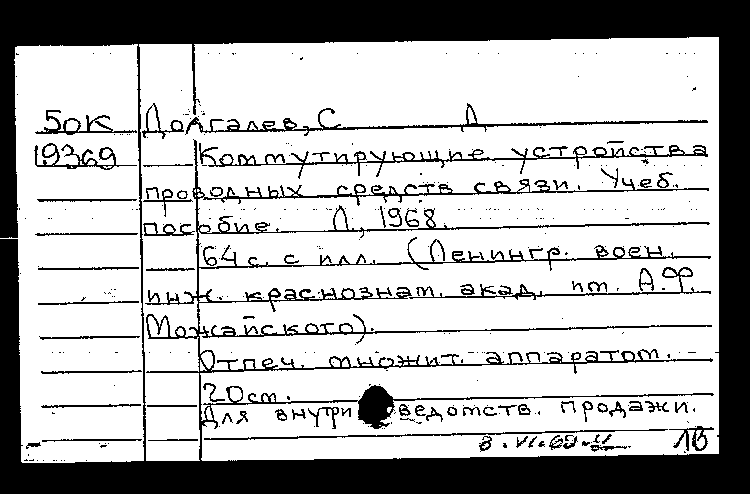 50К Долгалев, С Д
19369 Коммутирующие устройства
проводных средств связи. Учеб.
пособие. Л., 1968.
64 с. с илл. (Ленингр. воен.
инж. краснознам. акад. им. А.Ф.
Можайского).
Отпеч. множит. аппаратом.
20см.
Для внутриведомств. продажи.